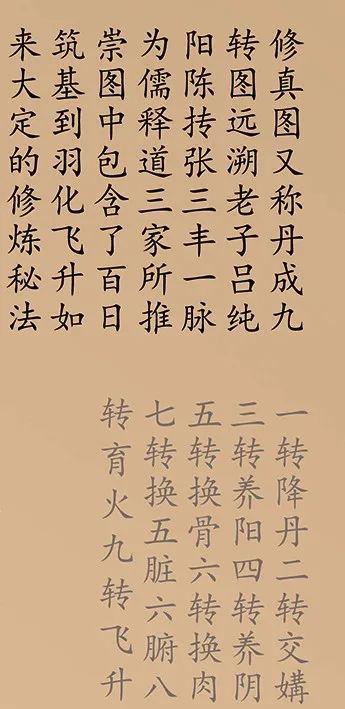 修真图又称丹成九
转图远溯老子吕纯
阳陈抟张三丰一脉
为儒释道三家所推
崇图中包含了百日
筑基到羽化飞升如
来大定的修炼秘法
一转降丹二转交媾
三转养阳四转养阴
五转换骨六转换肉
七转换五脏六腑八
转育火九转飞升